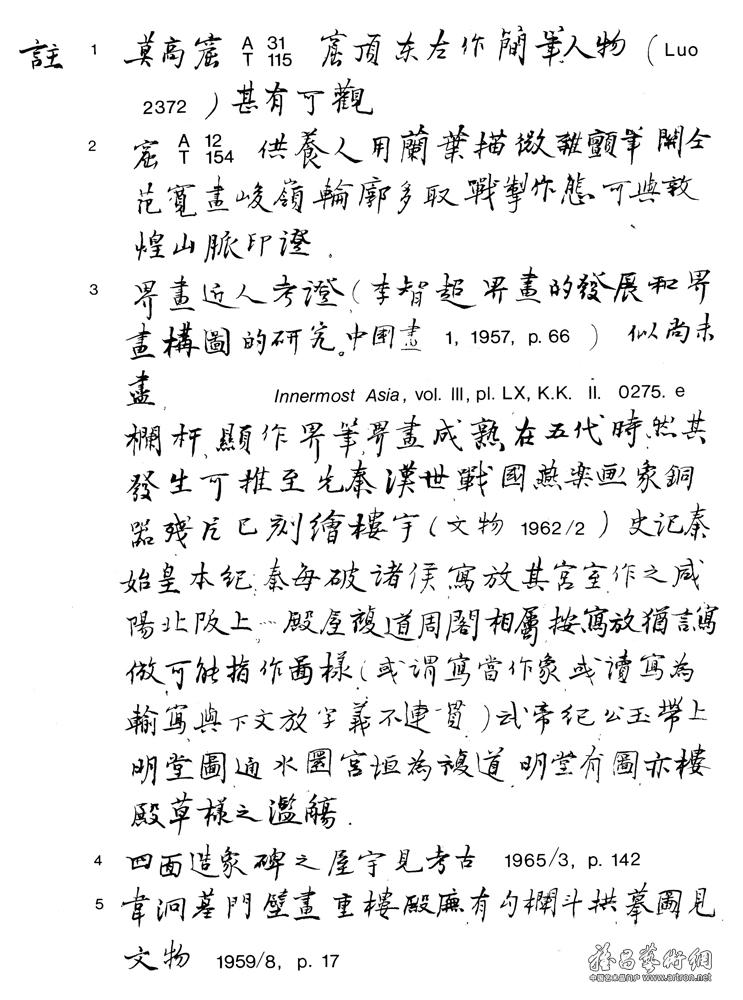 註 1 莫高窟 A 31 T 115 窟頂东左作簡筆人物 (Luo
2372 ) 甚有可觀
2 窟 A 12 T 154 供養人用蘭葉描微雜顫筆 関仝
范寬畫峻嶺輪廓多取戰掣作態可與敦
煌山脈印證.
3 界畫近人考證 (李智超 界畫的發展和界
畫構圖的研究。中国畫 1, 1957, p. 66 ) 似尚未
盡. Innermost Asia, vol. III, pl. LX, K.K. II. 0275. e
欄杆, 顯作界筆. 界畫成熟在五代時, 然其
發生可推至先秦漢世戰國燕乐画象銅
器殘片已刻繪樓宇 (文物 1962/2 ) 史记秦
始皇本纪. 秦每破諸侯寫放其宮室作之咸
陽北阪上…殿屋複道周閣相屬 按寫放猶言寫
倣可能指作畫樣 (或谓寫當作象 或讀寫為
輸寫與下文放字義不連貫 ) 武帝纪公玉帶上
明堂圖通水圜宮垣為複道 明堂有圖亦樓
殿草樣之濫觴.
4 四面造象碑之屋宇見考古 1965/3, p. 142
5 韋泂墓門壁畫重樓殿廡有勾欄斗拱摹圖見
文物 1959/8, p. 17
中国艺术品门户 www.artron.net